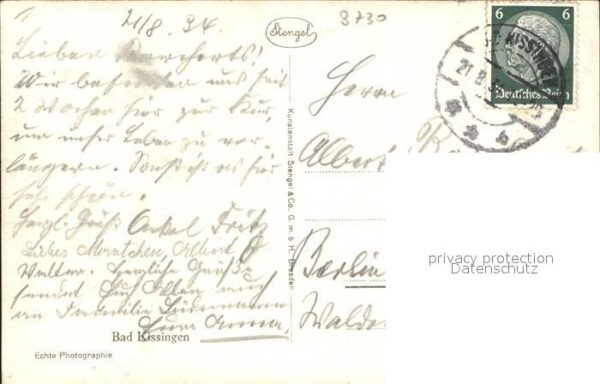 21/8. 34.
Lieben Borcherts!
Wir befinden uns seit
2 Wochen hier zur Kur,
um unser Leben zu ver-
längern. Sonst ist es hier
sehr schön.
Herzl. Grüße Onkel Fritz
Liebes Albert &
Walter. Herzliche Grüße
sendet Euch Allen auch
an Familie Südermann
Eure Anna,
Bad Kissingen
Echte Photographie
Stengel
Kunstanstalt Stengel & Co. G. m. b. H. Dresden
8730
6 6
Deutsches Reich
BAD KISSINGEN
21.8.3
Herrn
Albert
Berlin
Walde
privacy protection
Datenschutz